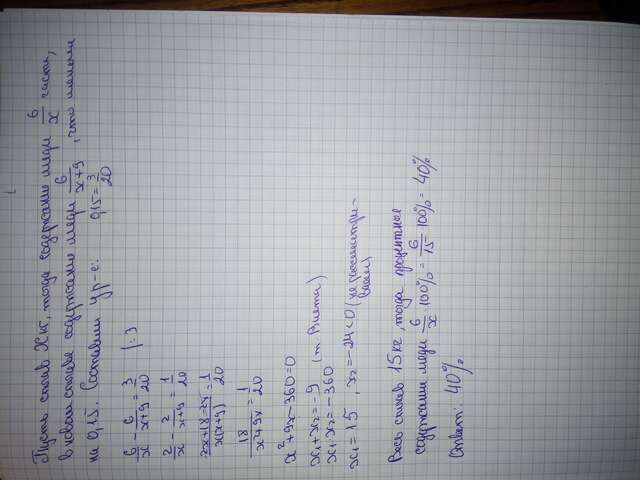 Пусть сплав Х кг, тогда содержание меди 6/x части,
в новом сплаве содержание меди 6/(x+9), что меньше
на 0,15. Составим ур-е: 0,15 = 3/20
6/x - 6/(x+9) = 3/20 | :3
2/x - 2/(x+9) = 1/20
(2x+18-2x)/(x(x+9)) = 1/20
18/(x²+9x) = 1/20
x²+9x-360=0
x₁+x₂=-9 (т. Виета)
x₁·x₂=-360
x₁=15, x₂=-24<0 (не рассматри-
ваем)
Весь сплав 15 кг, тогда процентное
содержание меди 6/x · 100% = 6/15 · 100% = 40%
Ответ: 40%